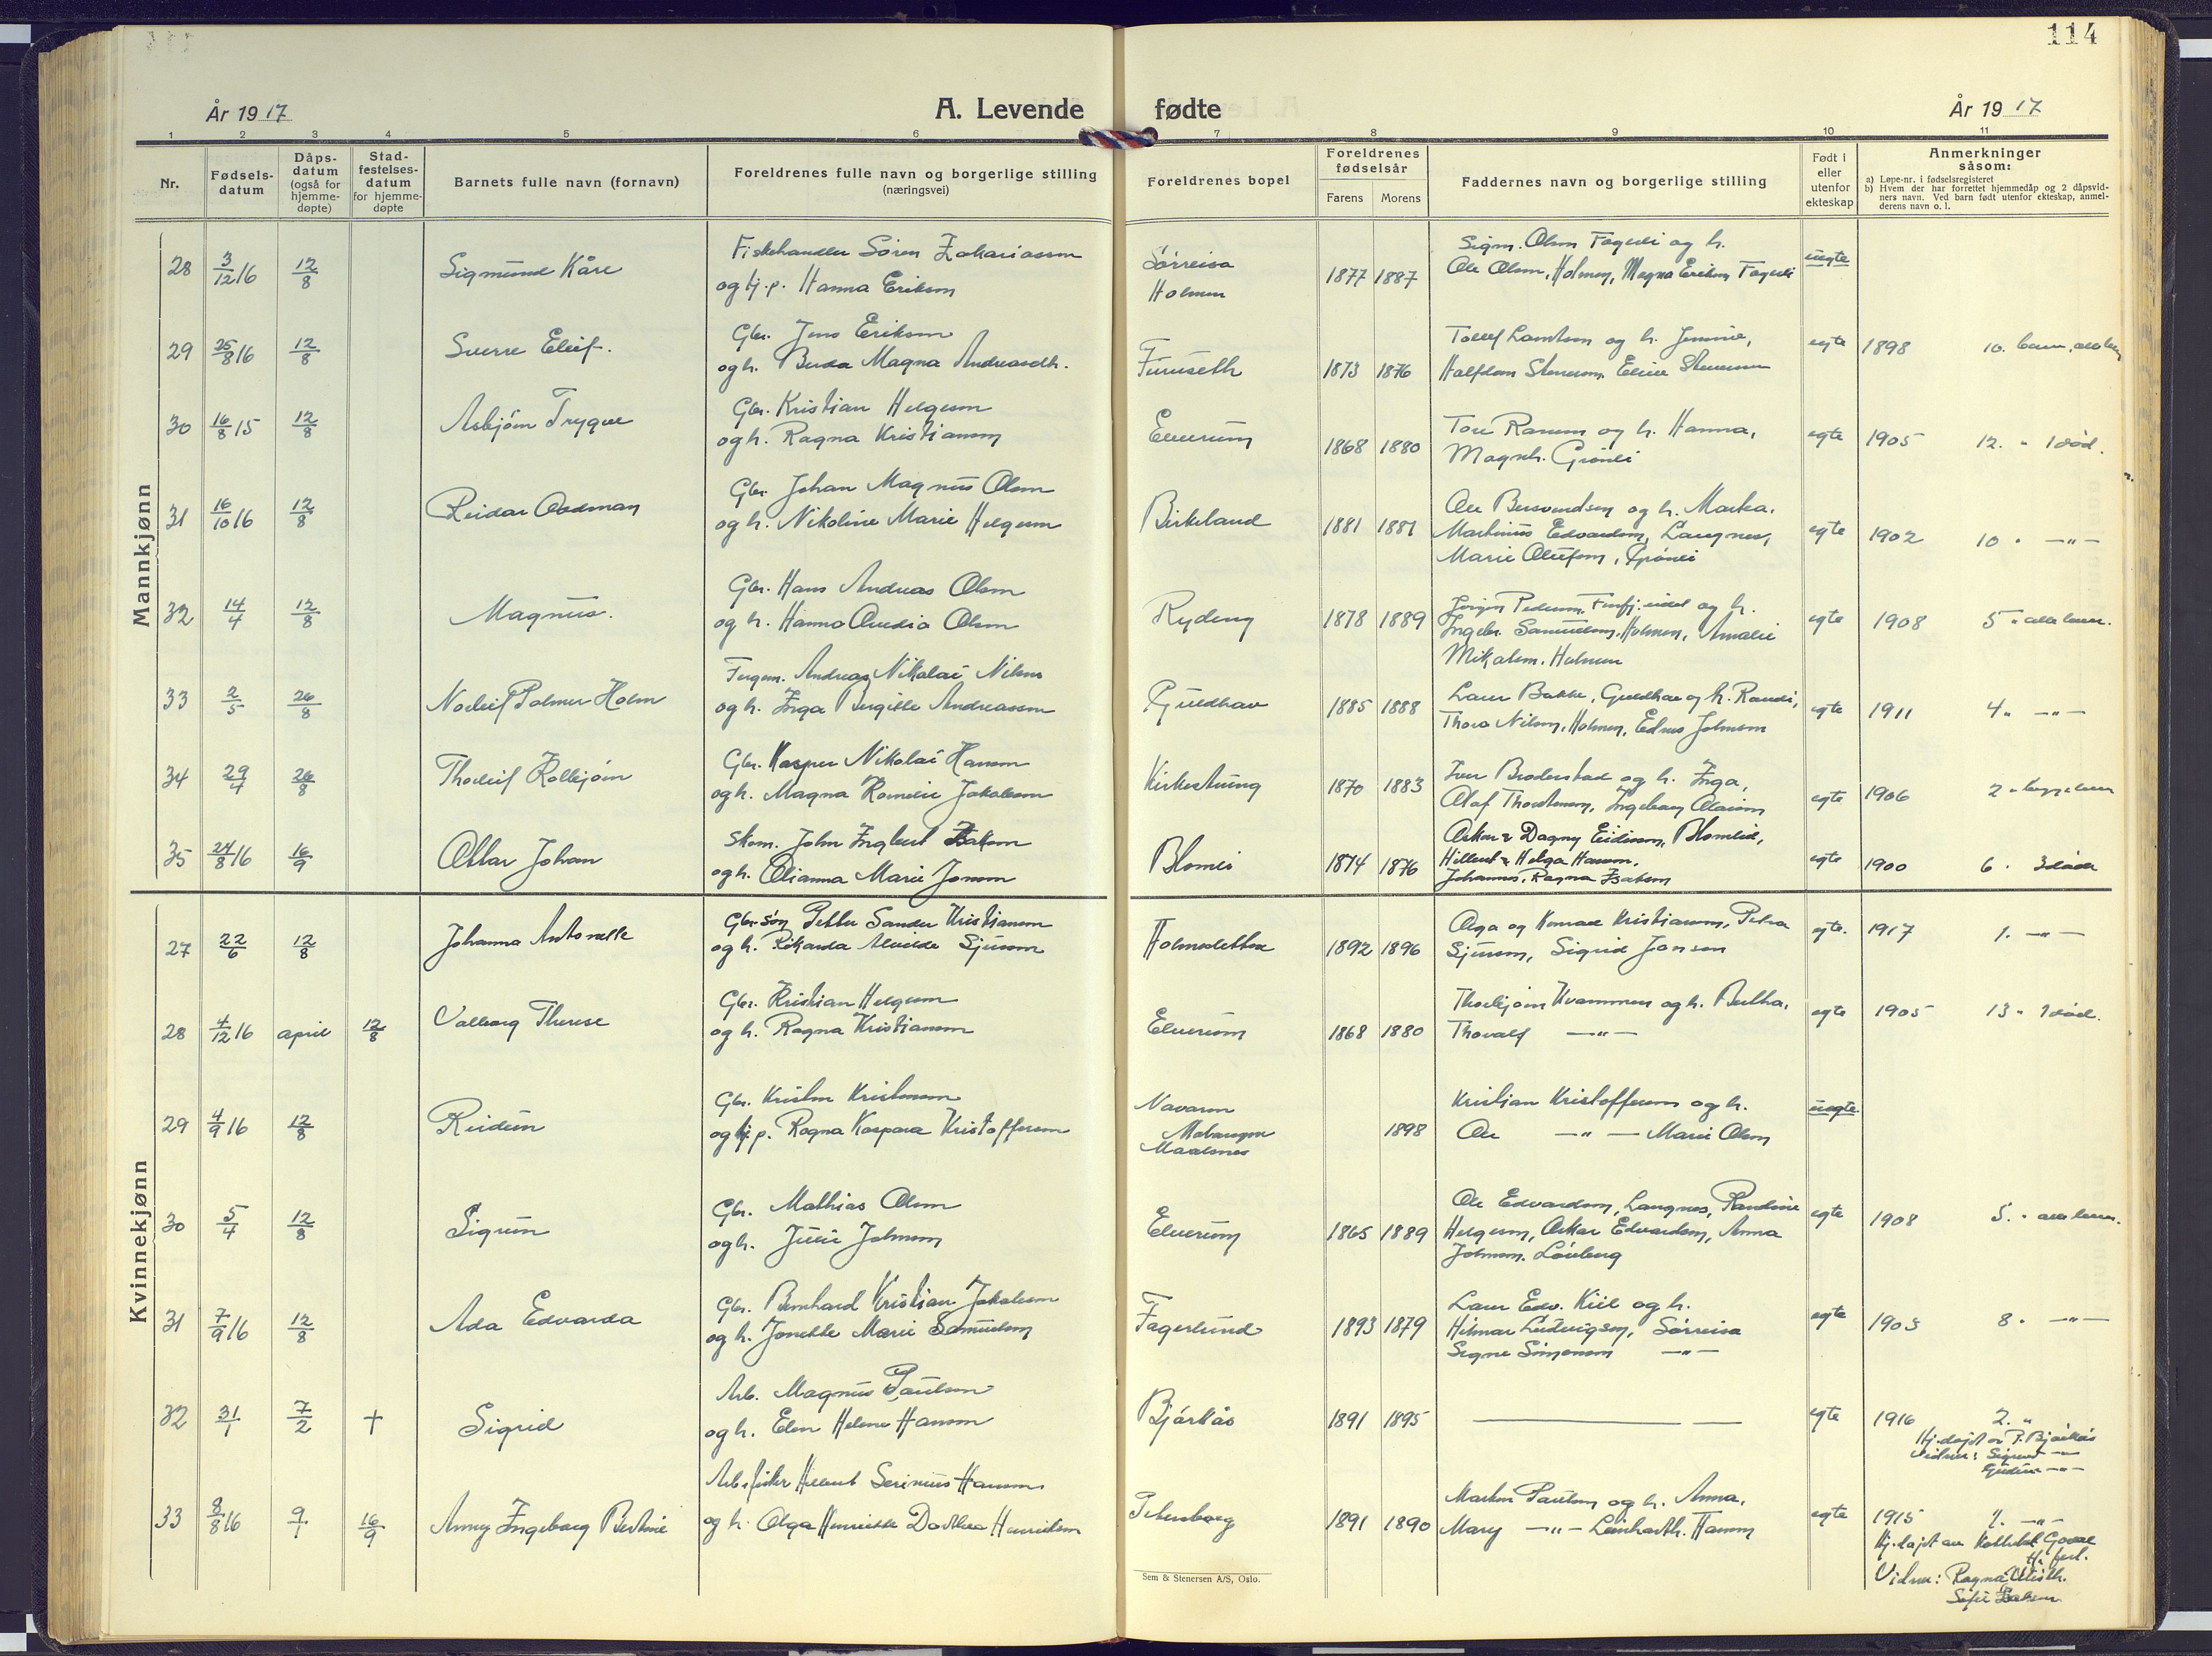 114
År 1917
A. Levende fødte
År 1917
1 2 3 4 5 6 7 8 9 10 11
Nr.
Fødsels-
datum
Dåps-
datum
(også for
hjemme-
døpte)
Stad-
festelses-
datum
for hjemme-
døpte
Barnets fulle navn (fornavn)
Foreldrenes fulle navn og borgerlige stilling
(næringsvei)
Foreldrenes bopel
Foreldrenes
fødselsår
Farens Morens
Faddernes navn og borgerlige stilling
Født i
eller
utenfor
ekteskap
Anmerkninger
såsom:
a) Løpe-nr. i fødselsregisteret
b) Hvem der har forrettet hjemmedåp og 2 dåpsvid-
ners navn. Ved barn født utenfor ekteskap, anmel-
derens navn o. l.
Mannkjønn
28 3/12 16 12/8 Sigmund Kåre
Fiskehandler Sören Zakariassen
og pj. p. Hanna Eriksen
Sörreisa
Holmen
1877 1887
Sigm. Olsen Fagerli og h.
Ole Olsen, Holmen, Magna Eriksen Fagerli
uegte
29 25/8 16 12/8 Sverre Eleif.
Gbr. Jens Eriksen
og h. Berda Magna Andreasdtr.
Furuseth
1873 1876
Tollef Lamtsen og h. Jennie,
Halfdan Stenersen, Eline Stenersen
egte 1898 10. barn, alle lev.
30 16/8 15 12/8 Asbjörn Trygve
Gbr. Kristian Helgesen
og h. Ragna Kristiansen
Elverum
1868 1880
Tore Ranum og h. Hanna,
Magnh. Grönli
egte 1905 12. " 1 död.
31 16/10 16 12/8 Reidar Oedman
Gbr. Johan Magnus Olsen
og h. Nikoline Marie Helgesen
Birkeland
1881 1881
Ole Bersvendsen og h. Marka.
Martinius Edvardsen, Langnes,
Marie Olufsen, Grönli
egte 1902 10 " —"—
32 14/4 12/8 Magnus.
Gbr. Hans Andreas Olsen
og h. Hanna Ovedia Olsen
Rydeng
1878 1889
Jörgen Pedersen, Finfj.eidet og h.
Ingebr. Samuelsen, Holmen, Amalie
Mikalsen, Holmen
egte 1908 5 " alle lever.
33 2/5 26/8 Norleif Palmer Holm
Andreas Nikolai Nilsen
og h. Inga Birgitte Andreassen
Gjuldhav
1885 1888
Laur Bakke, Guldhav og h. Randi,
Thora Nilsen, Holmen, Edvus Johnsen
egte 1911 4 " —"—
34 29/4 26/8 Thorleif Kolbjörn
Gbr. Kasper Nikolai Hansen
og h. Magna Romelie Jakobsen
Kirkestuing
1870 1883
Iver Broderstad og h. Inga,
Olaf Thorstensen, Ingeborg Olaisen
egte 1906 2 " begge lever
35 24/8 16 16/9 Ottar Johan
Skom. John Ingbert Isaksen
og h. Olianna Marie Jonsen
Blomli
1874 1876
Oskar & Dagny Eidissen, Blomlid,
Hilbert & Helga Hansen.
Johannes, Ragna Isaksen
egte 1900 6. 3 döde
Kvinnekjønn
27 22/6 12/8 Johanna Antonette
Gbr.sön Petter Sander Kristiansen
og h. Rikarda Alvilde Sjursen
Holmesletten
1892 1896
Olga og Konrad Kristiansen, Petra
Sjursen, Sigrid Jonsen
egte. 1917 1. —"—
28 4/12 16 april 12/8 Valborg Therese
Gbr. Kristian Helgesen
og h. Ragna Kristiansen
Elverum
1868 1880
Thorbjörn Kvammen og h. Bertha,
Thoralf —"—
egte 1905 13 " 1 död.
29 4/9 16 12/8 Reidun
Gbr. Kristen Kristensen
og pj. p. Ragna Kaspara Kristoffersen
Navaren
Maalsnes
1898
Kristian Kristoffersen og h.
Ole —"— Marie Olsen
uegte
30 5/4 12/8 Sigrun
Gbr. Mathias Olsen
og h. Julie Johnsen
Elverum
1865 1889
Ole Edvardsen, Langnes, Randine
Helgesen, Oskar Edvardsen, Anna
Johnsen, Löxberg
egte 1908 5. " alle lever.
31 7/9 16 12/8 Ada Edvarda
Gbr. Bernhard Kristian Jakobsen
og h. Jonette Marie Samuelsen
Fagerlund
1893 1879
Laur Edv. Kiil og h.
Hilmar Ludvigsen, Sörreisa
Signe Simonsen —"—
egte 1903 8. —"—
32 31/1 7/2 † Sigrid
Arb. Magnus Paulsen
og h. Elen Helene Hansen
Bjórkås
1891 1895
egte 1916 2. "
Hj.döpt av P. Bjórkås
Vidner: Sigurd —"—
Gudrun —"—
33 8/8 16 9/1 16/9 Anny Ingeborg Bertine
Arb. fisker Hilbert Serinius Hansen
og h. Olga Henriette Dorthea Henriksen
Petersborg
1891 1890
Markus Paulsen og h. Anna,
Mary —"— Leonharth. Hansen
egte 1915 1. —"—
Hj.döpt av Goval
Vidner: Ragna
Sofie Isaksen
Sem & Stenersen A/S, Oslo.